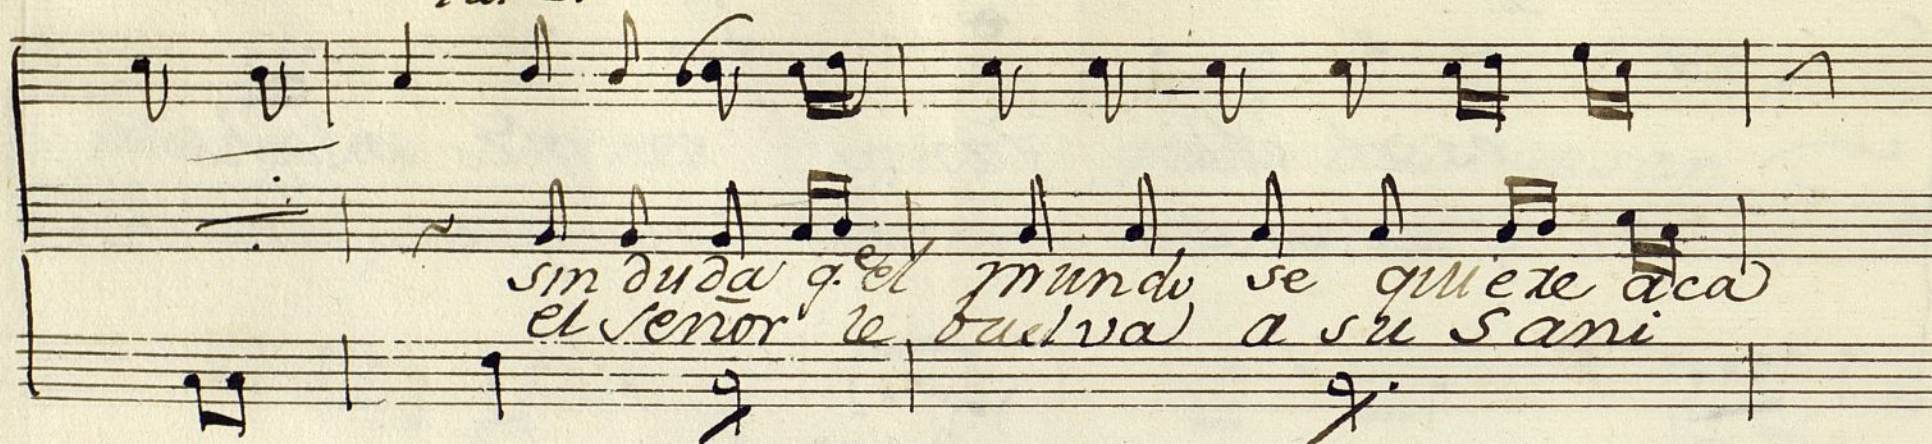 sin duda q.e el mundo se quiere aca
el señor le buelva a su sani